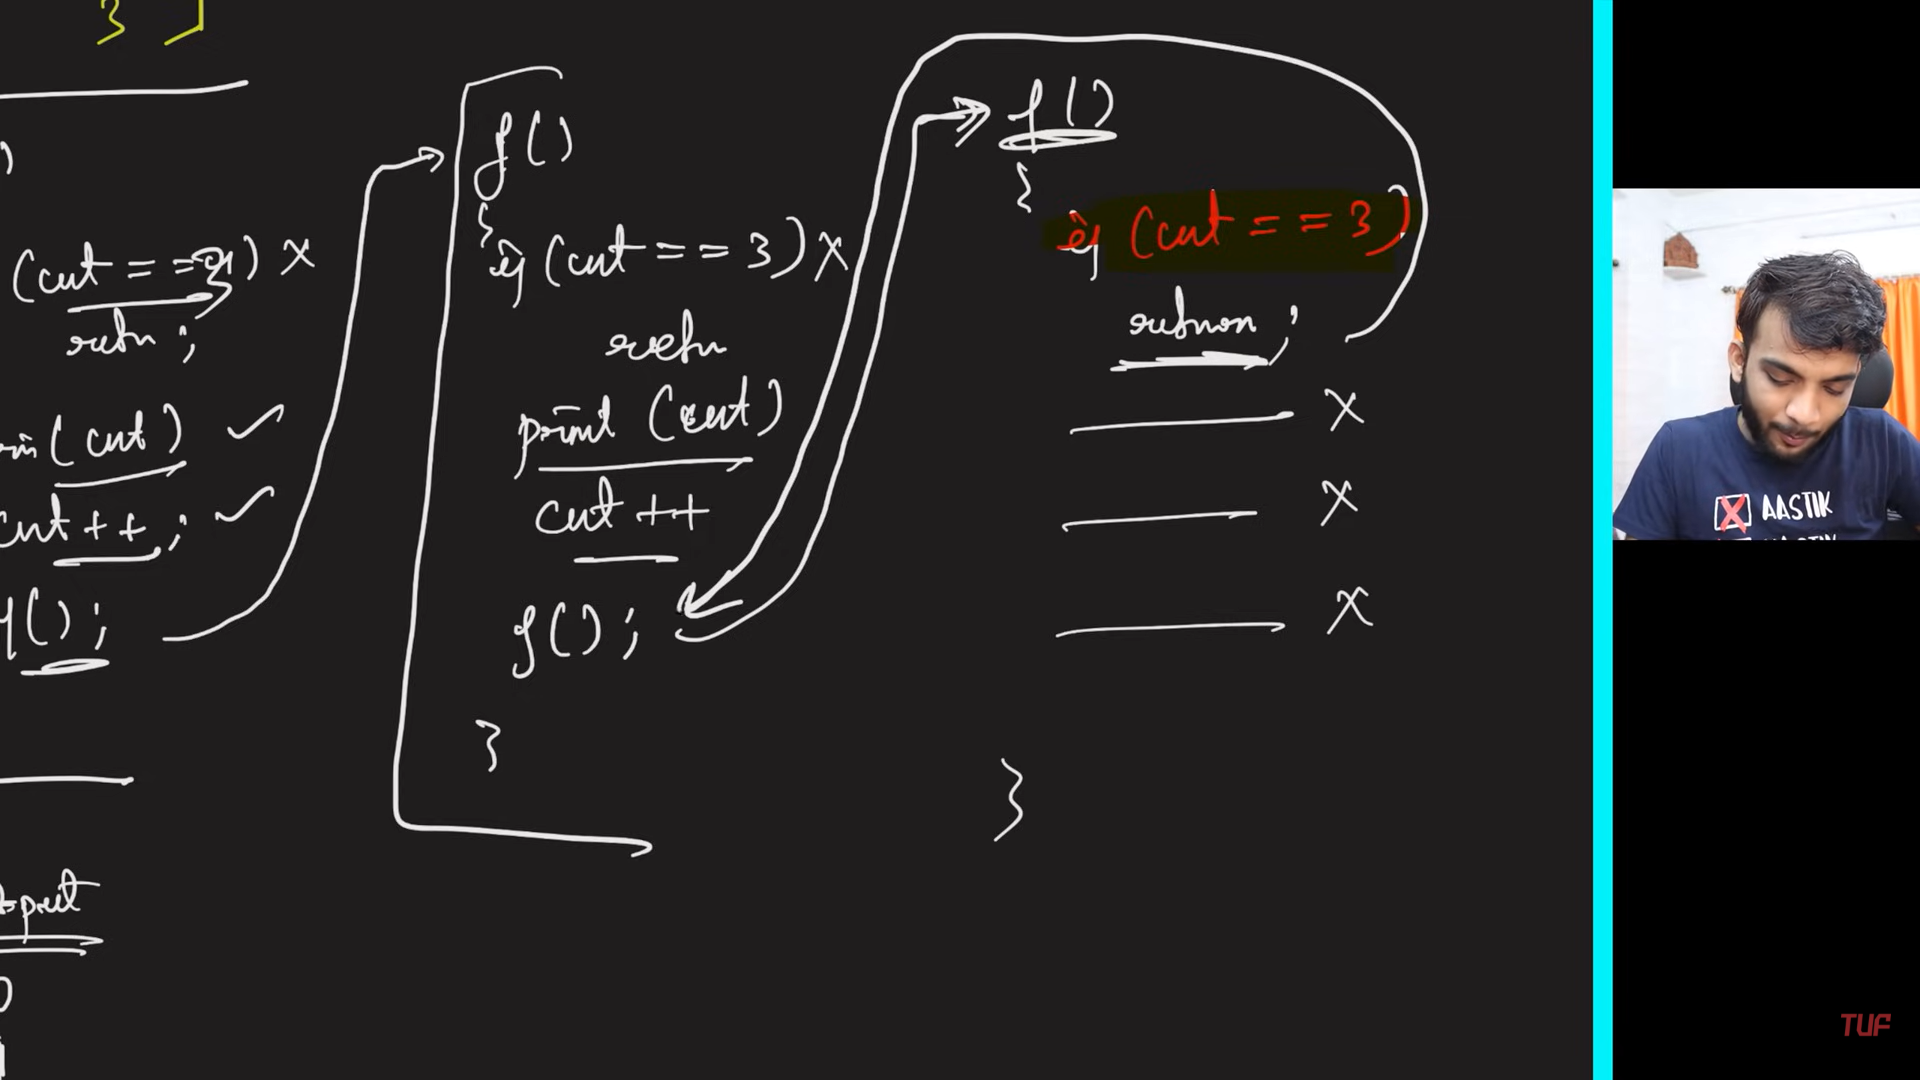 3 ]
)
(cnt == 3) x
retn;
(cnt) ✓
cnt++; ✓
f();
put
0
1
f()
{
if (cnt == 3) x
retn
print (cnt)
cnt ++
f();
}
f()
{
if (cnt == 3)
return;
x
x
x
}
AASTIK
TUF